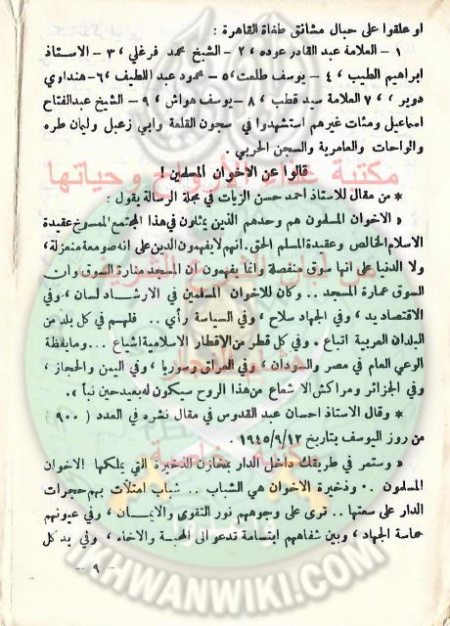 او علقوا على حبال مشانق طغاة القاهرة :
١ – العلامة عبد القادر عوده ، ٢ – الشيخ محمد فرغلي ، ٣ – الاستاذ
ابراهيم الطيب ، ٤ – يوسف طلعت ، ٥ – محمود عبد اللطيف ، ٦ – هنداوي
دوير ، ، ٧ العلامة سيد قطب ، ٨ – يوسف هواش ، ٩ – الشيخ عبدالفتاح
اسماعيل ومئات غيرهم استشهدوا في سجون القلعة وابي زعبل وليمان طره
والواحات والعامرية والسجن الحربي .
قالوا عن الاخوان المسلمين !
* من مقال للاستاذ احمد حسن الزيات في مجلة الرسالة يقول :
« الاخوان المسلمون هم وحدهم الذين يمثلون في هذا المجتمع الممسوخ عقيدة
الاسلام الخالص وعقيدة المسلم الحق . انهم لا يفهمون الدين على انه صومعة منعزلة ،
ولا الدنيا على انها سوق منفصلة وانما يفهمون ان المسجد منارة السوق وان
السوق عمارة المسجد .. وكان للاخوان المسلمين في الارشاد لسان ، وفي
الاقتصاد يد ، وفي الجهاد سلاح ، وفي السياسة رأي .. فلهم في كل بلد من
البلدان العربية اتباع . وفي كل قطر من الاقطار الاسلامية اشياع ... وما يقظة
الوعي العام في مصر والسودان ، وفي العراق وسوريا ، وفي اليمن والحجاز ،
وفي الجزائر ومراكش الا شعاع من هذا الروح سيكون له بعد حين نبأ » .
* وقال الاستاذ احسان عبد القدوس في مقال نشره في العدد ( ٩٠٠ )
من روز اليوسف بتاريخ ١٩٤٥/٩/١٢ .
« وستمر في طريقك داخل الدار بمخازن الذخيرة التي يملكها الاخوان
المسلمون .. وذخيرة الاخوان هي الشباب .. شباب امتلأت بهم حجرات
الدار على سعتها .. ترى على وجوههم نور التقوى والايمان ، وفي عيونهم
حماسة الجهاد ، وبين شفاههم ابتسامة تدعو الى المحبة والاخاء ، وفي يد كل
– ٩ –
مكتبة غذاء الأرواح وحياتها
IKHWANWIKI.COM